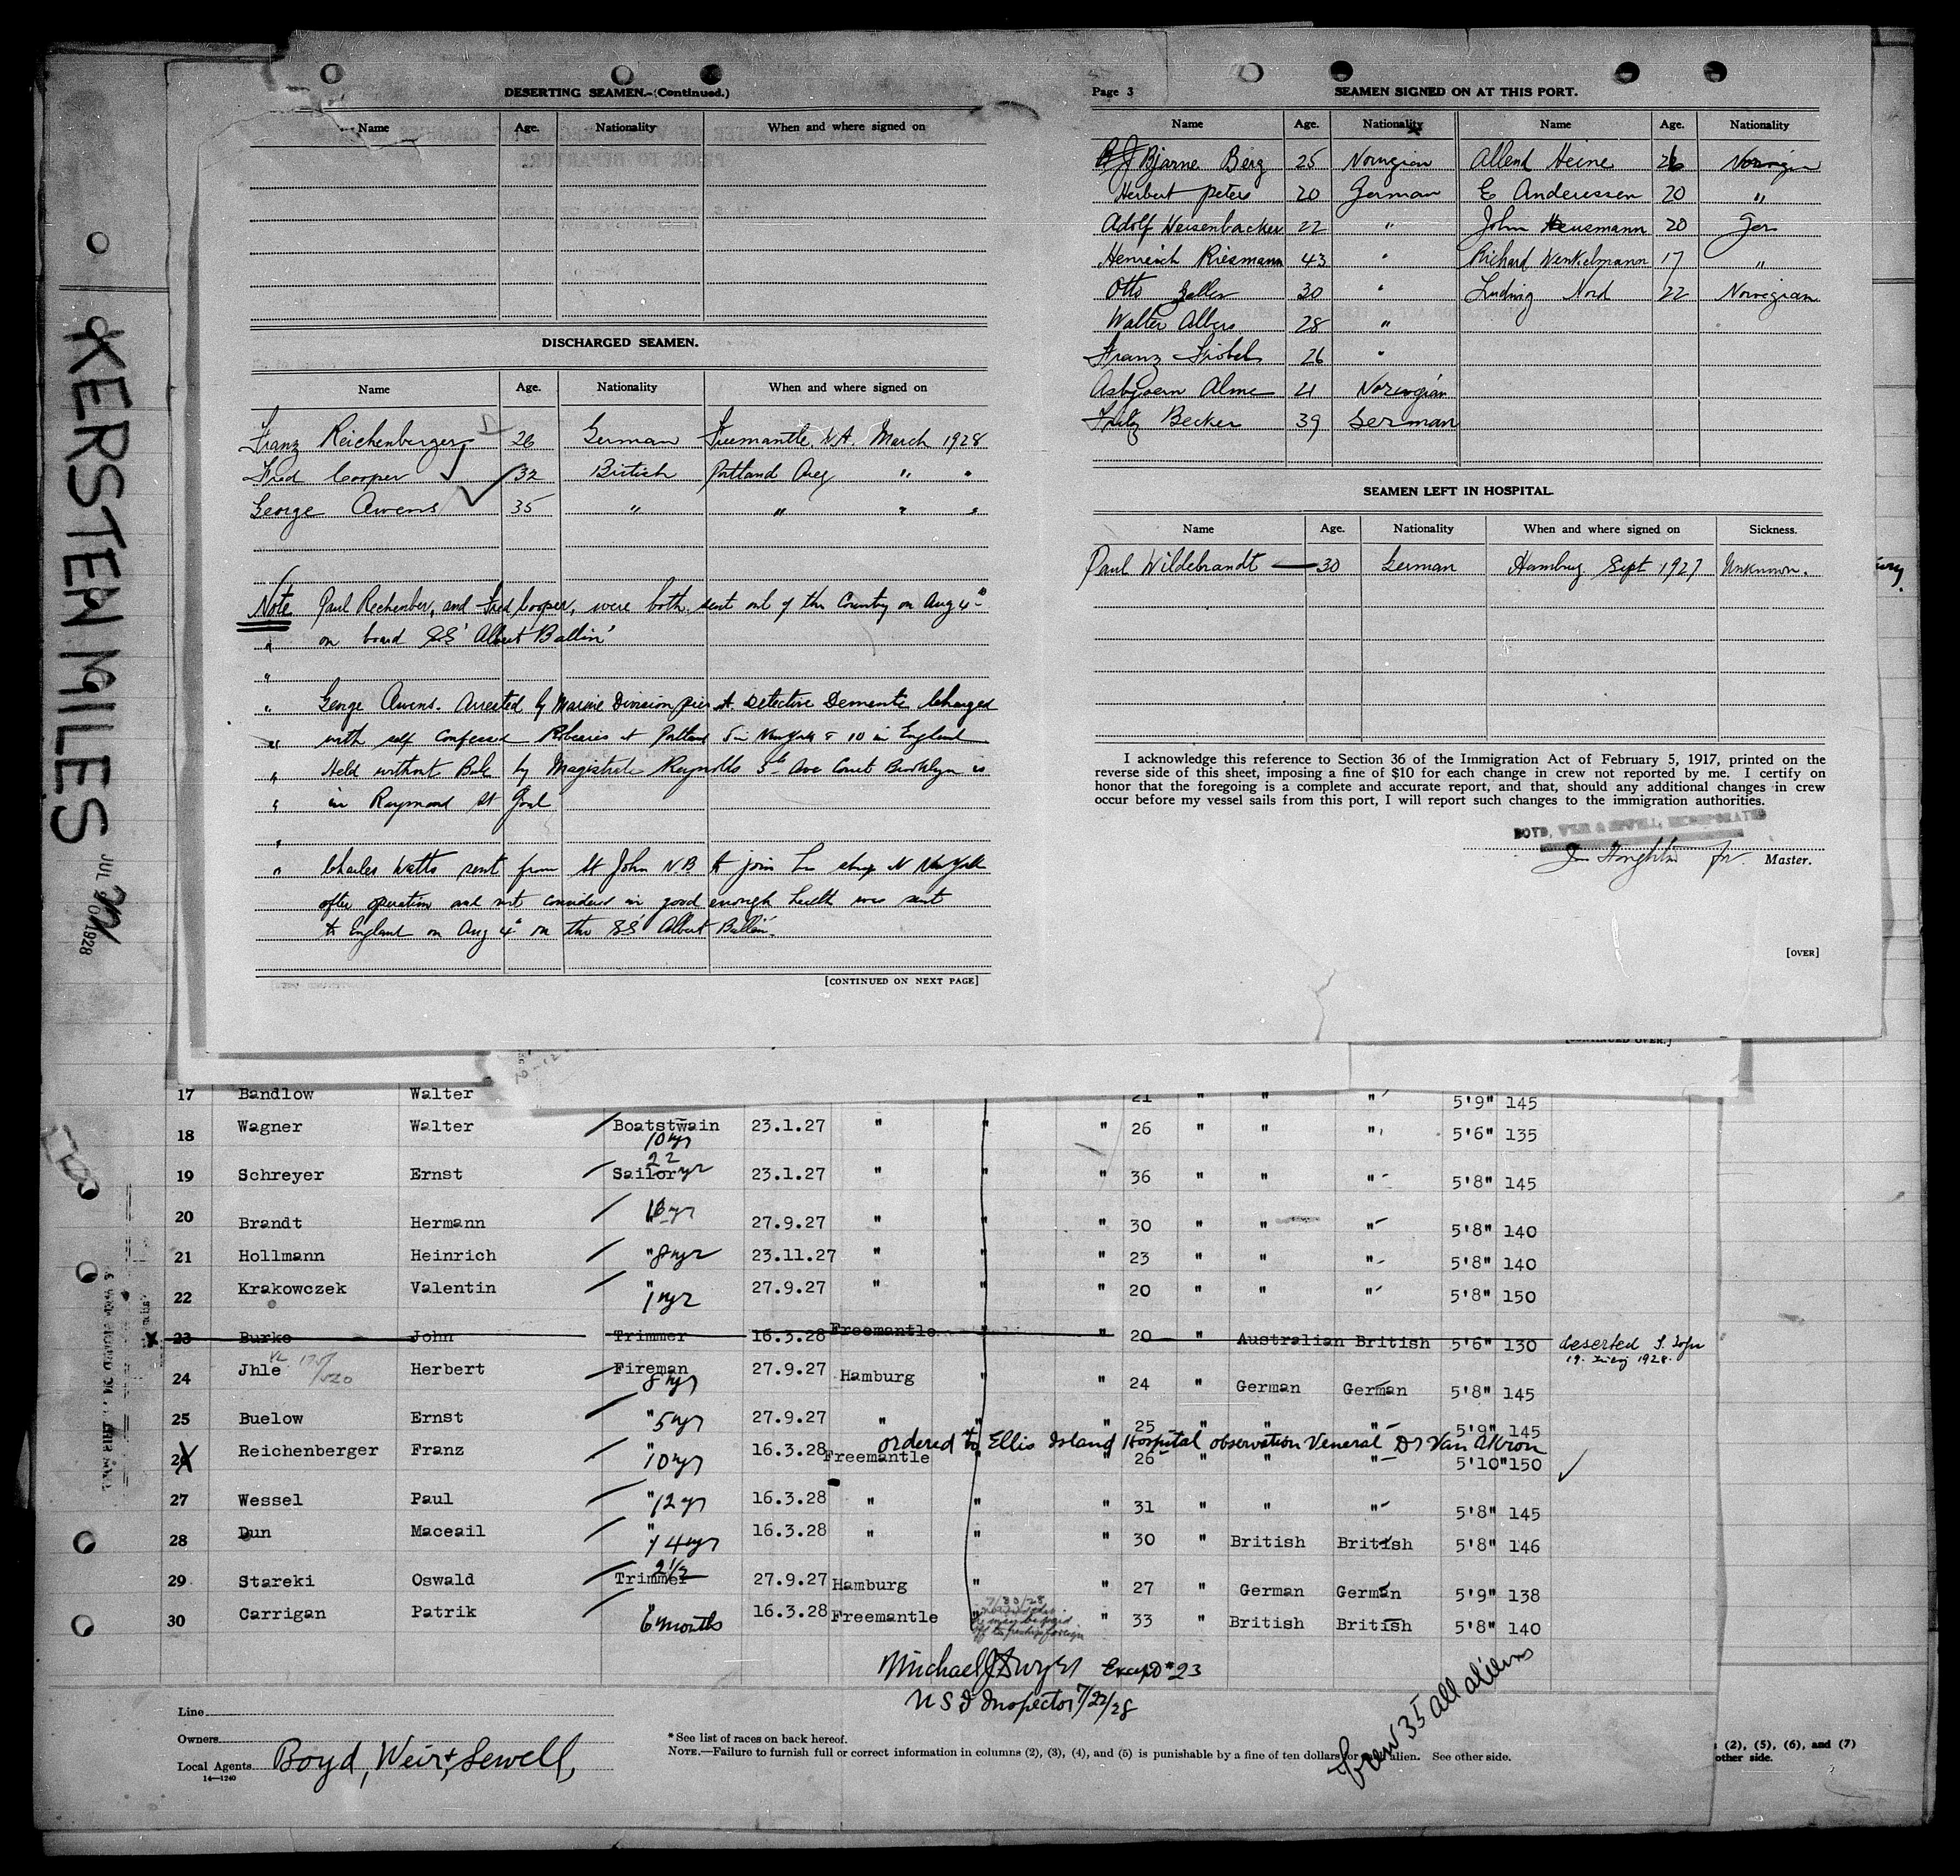 KERSTEN MILES
JUL 20 1928
DESERTING SEAMEN.-(Continued.)
Name Age. Nationality When and where signed on
DISCHARGED SEAMEN.
Name Age. Nationality When and where signed on
Franz Reichenberger 26 German Freemantle, W.A. March 1928
Fred Cooper 32 British Portland Aus " "
George Owens 35 " " " "
Note Paul Rechenber, and Fred Cooper, were both sent out of this Country on Aug 4th
" on board SS 'Albert Ballin'
"
" George Owens. Arrested by Marine Division pier A Detective Charged
" with self Confessed Robearies at Portland 5 in New York & 10 in England
" Held without Bale by Magistrate Reynolds 5th Ave Court Brooklyn is
" in Raymond St Goal
"
" Charles Watts sent from St John N.B to join his ship at New York
after operation and not considered in good enough health was sent
to England on Aug 4th on the SS Albert Ballin.
[CONTINUED ON NEXT PAGE]
Page 3 SEAMEN SIGNED ON AT THIS PORT.
Name Age. Nationality Name Age. Nationality
Bjarne Berg 25 Norwgian Allend Heine 26 Norwgin
Herbert Peters 20 German E Anderessen 20 "
Adolf Weisenbacker 22 " John Heusmann 20 Ger
Henreich Riesmann 43 " Richard Wenkelmann 17 "
Otto 30 " Ludwig Nord 22 Norwegian
Walter Albers 28 "
Franz 26 "
Asbjoern Alme 21 Norwegian
Fritz Becker 39 German
SEAMEN LEFT IN HOSPITAL.
Name Age. Nationality When and where signed on Sickness.
Paul Wildebrandt — 30 German Hamburg Sept 1927 Unknown.
I acknowledge this reference to Section 36 of the Immigration Act of February 5, 1917, printed on the
reverse side of this sheet, imposing a fine of $10 for each change in crew not reported by me. I certify on
honor that the foregoing is a complete and accurate report, and that, should any additional changes in crew
occur before my vessel sails from this port, I will report such changes to the immigration authorities.
BOYD, WEIR & SEWELL, INCORPORATED
Master.
[OVER]
[CONTINUED OVER.]
17 Bandlow Walter 21 " " " 5'9" 145
18 Wagner Walter Boatstwain 10 yr 23.1.27 " " " 26 " " " 5'6" 135
19 Schreyer Ernst Sailor 22 yr 23.1.27 " " " 36 " " " 5'8" 145
20 Brandt Hermann " 27.9.27 " " " 30 " " " 5'8" 140
21 Hollmann Heinrich " 8 yr 23.11.27 " " " 23 " " " 5'8" 140
22 Krakowczek Valentin " 1 yr 27.9.27 " " " 20 " " " 5'8" 150
23 Burke John Trimmer 16.3.28 Freemantle " " 20 " Australian British 5'6" 130 deserted S. John
19. 1928.
24 Jhle Herbert Fireman 8 yr 27.9.27 Hamburg " " 24 " German German 5'8" 145
25 Buelow Ernst " 5 yr 27.9.27 " " " 25 " " " 5'9" 145
ordered to Ellis Island Hospital observation Veneral Dr Van Akron
26 Reichenberger Franz " 10 yr 16.3.28 Freemantle " " 26 " " " 5'10" 150
27 Wessel Paul " 12 yr 16.3.28 " " " 31 " " " 5'8" 145
28 Dun Maceail " 14 yr 16.3.28 " " " 30 " British British 5'8" 146
29 Stareki Oswald Trimmer 2 1/2 27.9.27 Hamburg " " 27 " German German 5'9" 138
30 Carrigan Patrik " 6 months 16.3.28 Freemantle " " 33 " British British 5'8" 140
7/30/28
Michael J Dwyer Except #23
U S I Inspector 7/22/28
Crew 35 all aliens
Line
Owners
Local Agents Boyd, Weir & Sewell,
14—1240
* See list of races on back hereof.
NOTE.—Failure to furnish full or correct information in columns (2), (3), (4), and (5) is punishable by a fine of ten dollars for each alien. See other side.
(2), (5), (6), and (7)
other side.